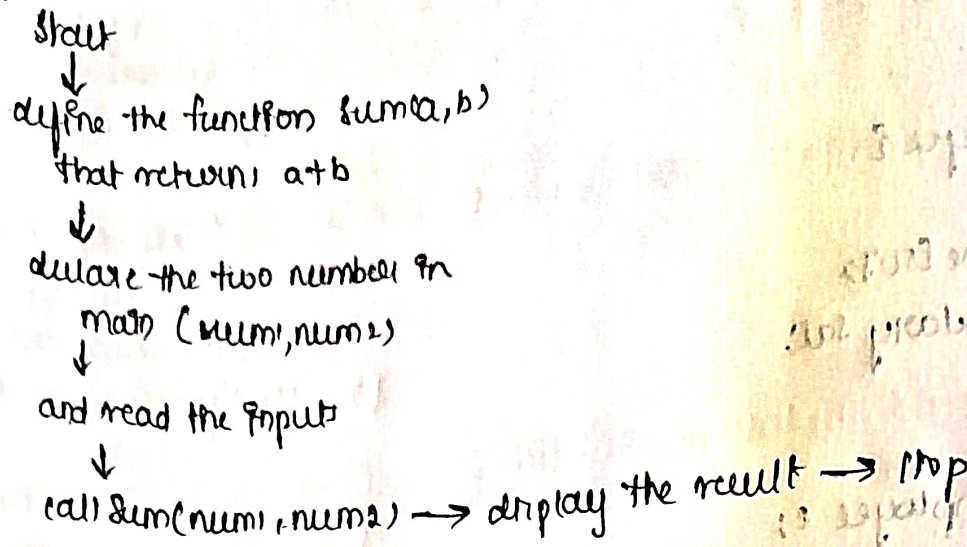 Start
↓
define the function sum(a,b)
that returns a+b
↓
declare the two number in
main (num1,num2)
↓
and read the inputs
↓
call Sum(num1, num2) → display the result → stop